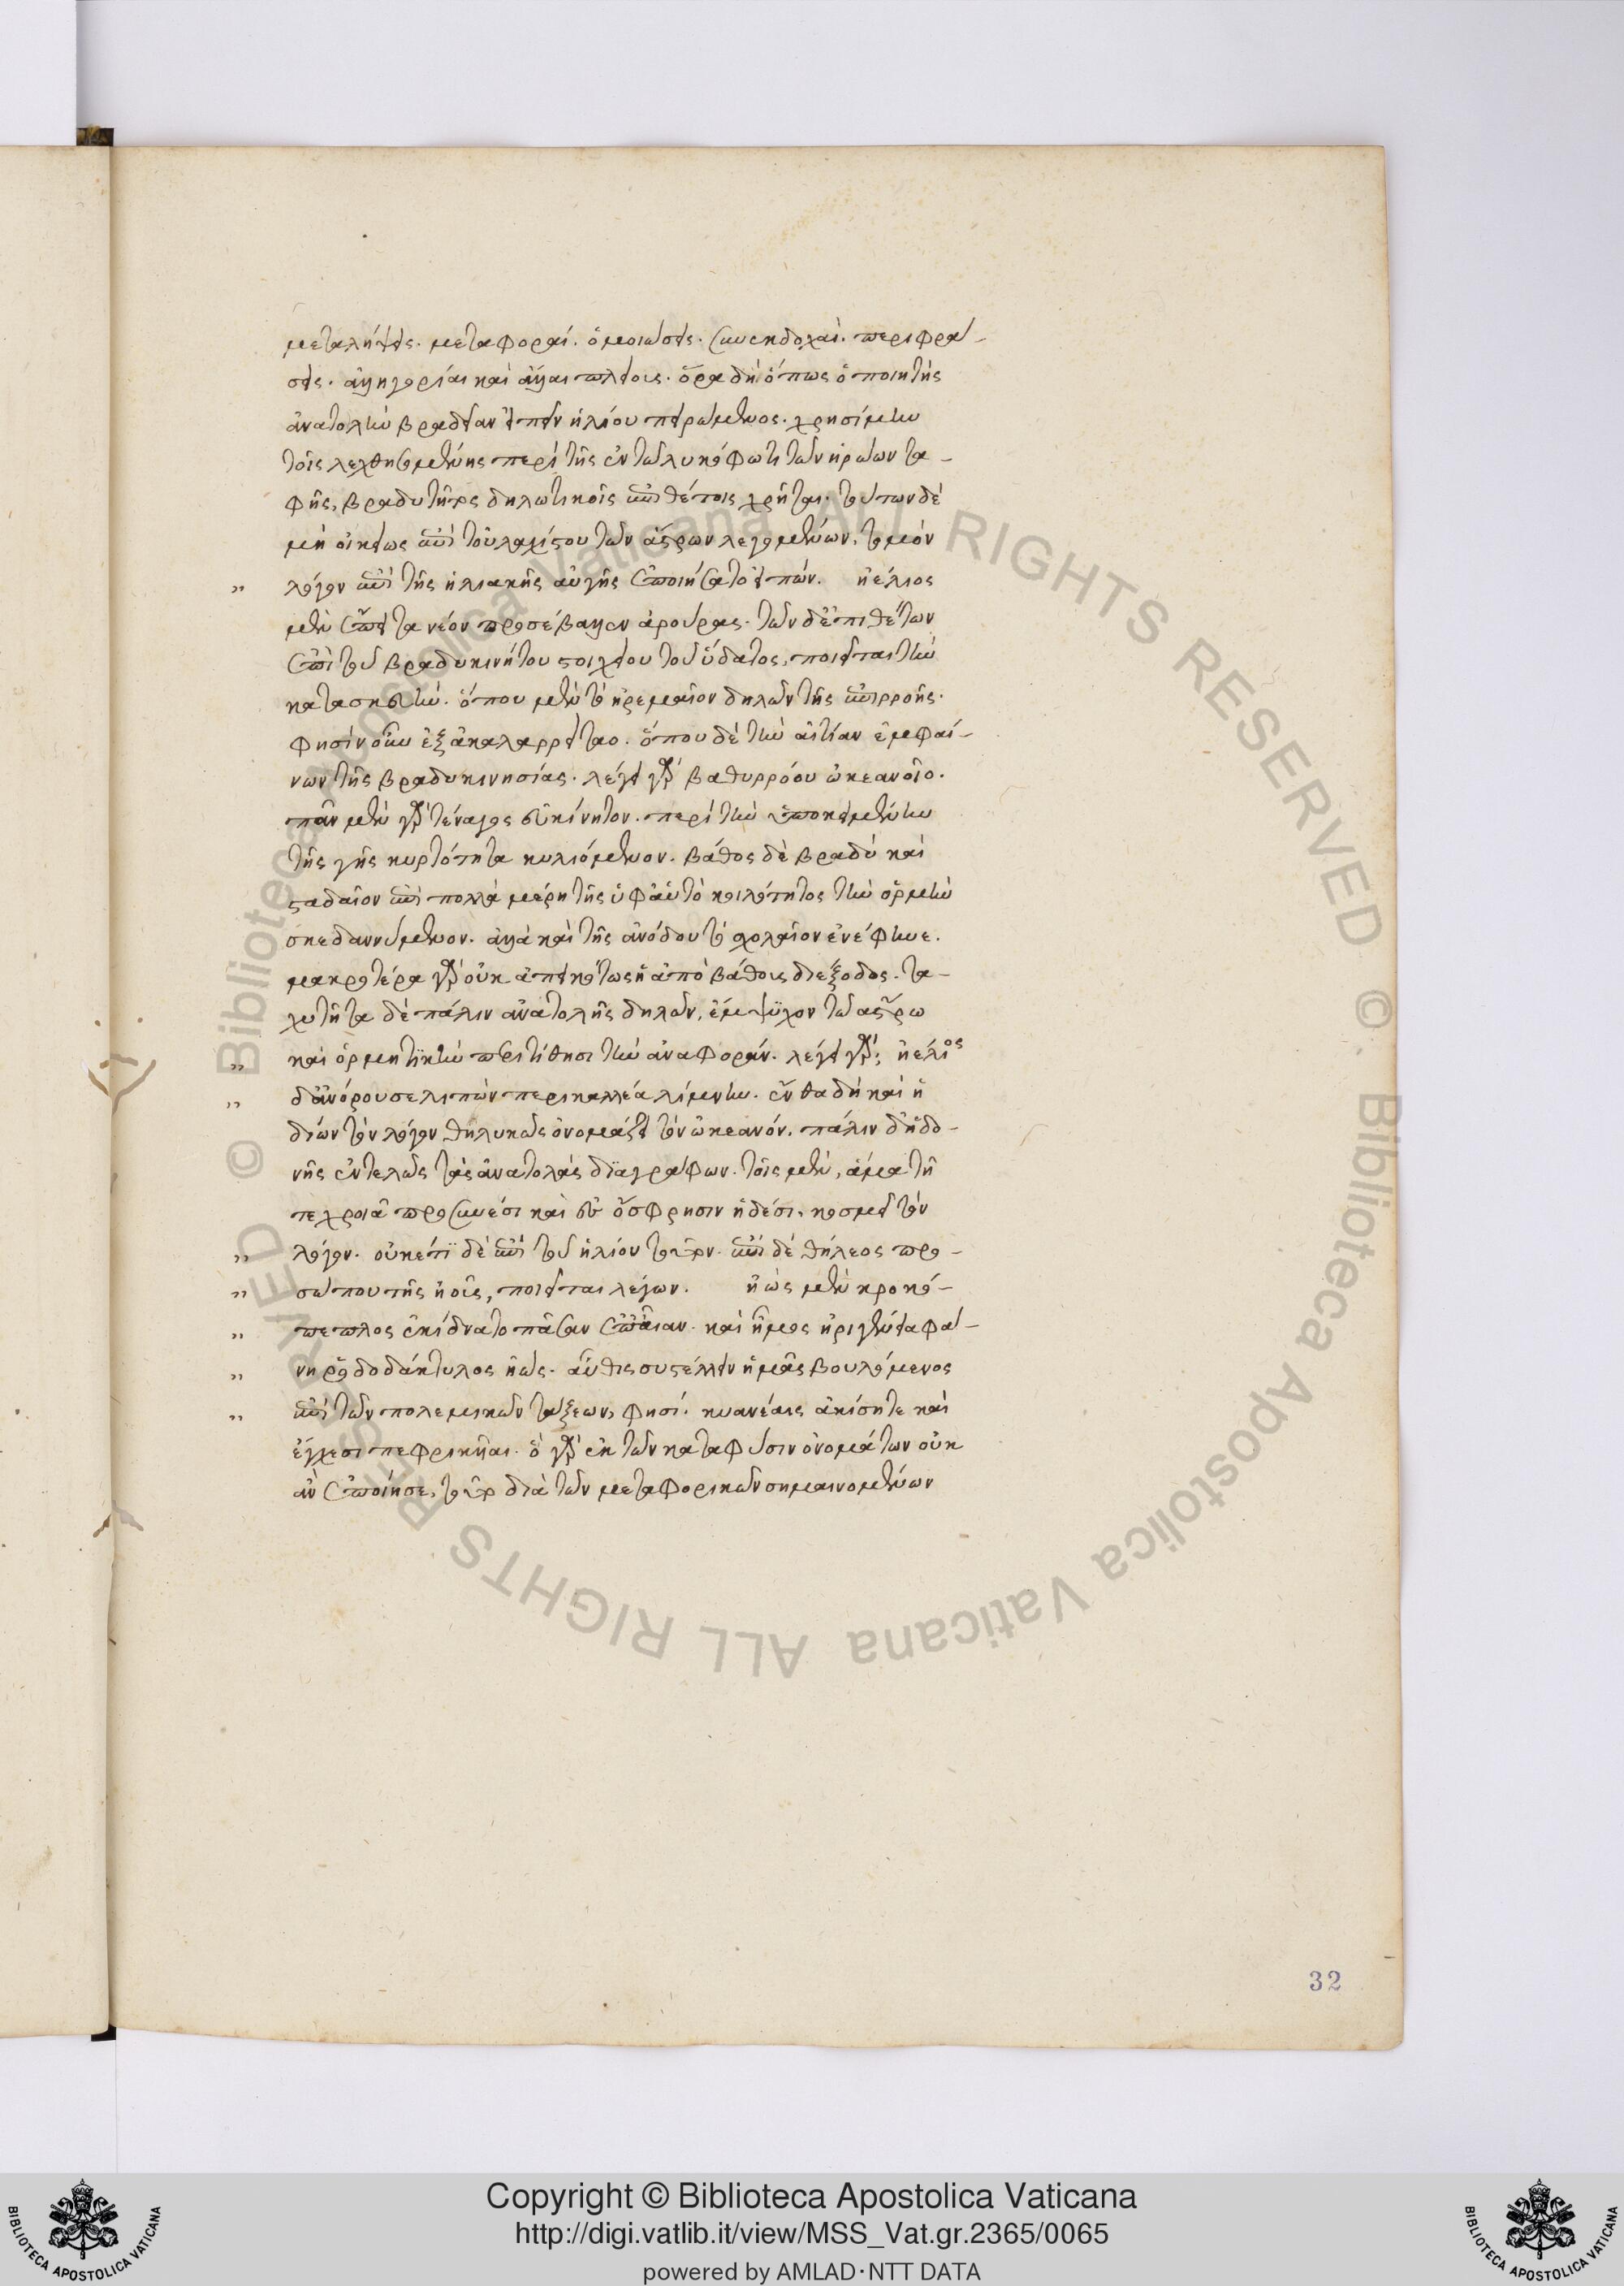 μεταλήψεις. μεταφοραί. ὁμοιώσεις. συνεκδοχαί. περιφρά-
σεις. ἀλληγορίαι καὶ ἄλλαι πλείους. ὅρα δὴ ὅπως ὁ ποιητὴς
ἀνατολὴν βραδεῖαν εἰπεῖν ἡλίου πειρώμενος. χρησίμην
τοῖς λεχθησομένοις περὶ τῆς ἐν τῶ λυκόφωτι τῶν ἡρώων τα-
φῆς, βραδυτῆτος δηλωτικοῖς ἐπιθέτοις χρῆται. τούτων δὲ
μὴ οἰκείως ἐπὶ τοῦ ταχίστου τῶν ἄστρων λεγομένων, τὸ μὲν
λόγον ἐπὶ τῆς ἡλιακῆς αὐγῆς ἐποιήσατο εἰπών. ἠέλιος
μὲν ἔπειτα νέον προσέβαλλεν ἀρούρας. τῶν δ' ἐπιθέτων
ἐπὶ τοῦ βραδυκινήτου στοιχείου τοῦ ὕδατος, ποιεῖται τὴν
κατασκευήν. ὅπου μὲν τὸ ἠρεμαῖον δηλῶν τῆς ἐπιρροῆς.
φησὶν οὖν ἐξ ἀκαλαρρείταο. ὅπου δὲ τὴν αἰτίαν ἐμφαί-
νων τῆς βραδυκινησίας. λέγει γὰρ βαθυρρόου ὠκεανοῖο.
πᾶν μὲν γὰρ τέναγος εὐκίνητον. περὶ τὴν ὑποκειμένην
τῆς γῆς κυρτότητα κυλιόμενον. βάθος δὲ βραδὺ καὶ
σταδαῖον ἐπὶ πολλὰ μέρη τῆς ὑφ' αὑτὸ κοιλότητος τὴν ὁρμὴν
σκεδαννύμενον. ἀλλὰ καὶ τῆς ἀνόδου τὸ σχολαῖον ἐνέφηνε.
μακροτέρα γὰρ οὐκ ἀπεικότως ἡ ἀπὸ βάθους διέξοδος. τα-
χυτῆτα δὲ πάλιν ἀνατολῆς δηλῶν, ἔμψυχον τῶ ἄστρω
καὶ ὁρμητικὴν περιτίθησι τὴν ἀναφοράν. λέγει γὰρ, ἠέλιος
δ' ἀνόρουσε λιπὼν περικαλλέα λίμνην. ἔνθα δὴ καὶ ἡ
δύων τὸν λόγον θηλυκῶς ὀνομάζει τὸν ὠκεανόν. πάλιν δ' ἡδο-
νῆς ἐντελῶς τὰς ἀνατολὰς διαγράφων. τοῖς μὲν, ἅμα τῆ
τε χροιᾶ προσηνέσι καὶ εἰς ὄσφρησιν ἡδέσι, κοσμεῖ τὸν
λόγον. οὐκέτι δὲ ἐπὶ τοῦ ἡλίου τοῦτον. ἐπὶ δὲ θήλεος προ-
σώπου τῆς ἠοῦς, ποιεῖται λέγων. ἠὼς μὲν κροκό-
πεπλος ἐκίδνατο πᾶσαν ἐπ' αἶαν. καὶ ἦμος ἠριγένεια φά-
νη ῥοδοδάκτυλος ἠώς. αὖθις συστέλλειν ἡμᾶς βουλόμενος
ἐπὶ τῶν πολεμικῶν τάξεων, φησί. κυανέαις ἀκίσητε καὶ
ἔγχεσι πεφρικυῖαι. ὃ γὰρ ἐκ τῶν κατὰ φύσιν ὀνομάτων οὐκ
ἂν ἐποίησε, τοῦτο διὰ τῶν μεταφορικῶν σημαινομένων
32
Copyright © Biblioteca Apostolica Vaticana
http://digi.vatlib.it/view/MSS_Vat.gr.2365/0065
powered by AMLAD·NTT DATA